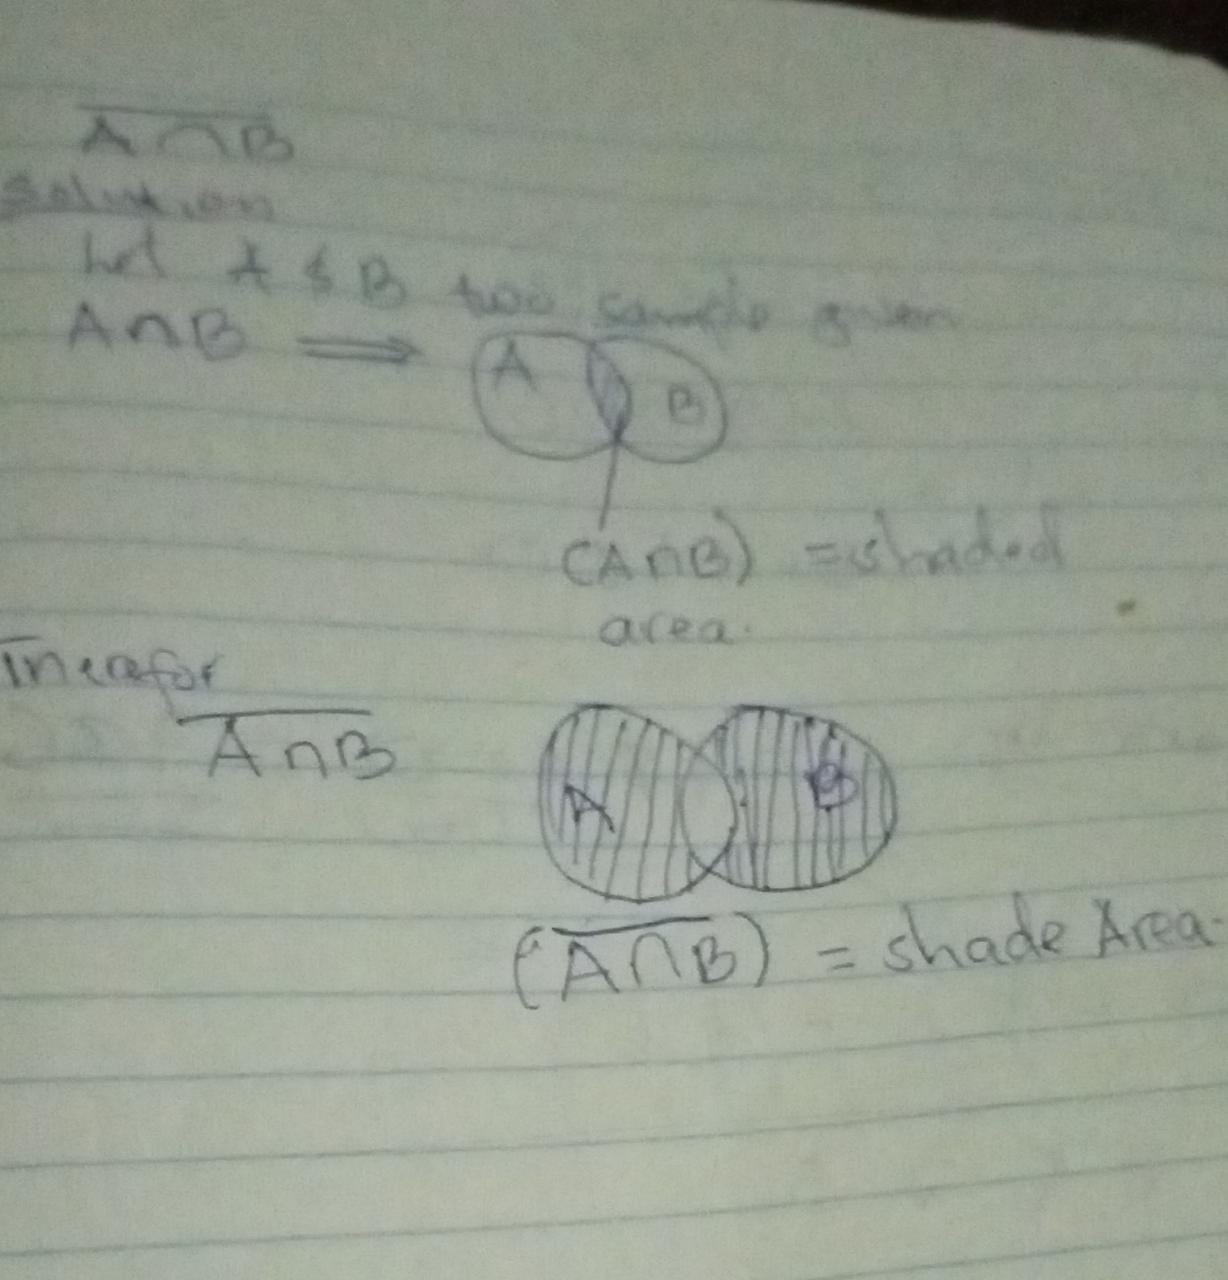 A∩B
Solution
Let A & B two sample given
A∩B ⟹ A B
(A∩B) = shaded
area.
Therefor
A∩B A B
(A∩B) = shade Area.